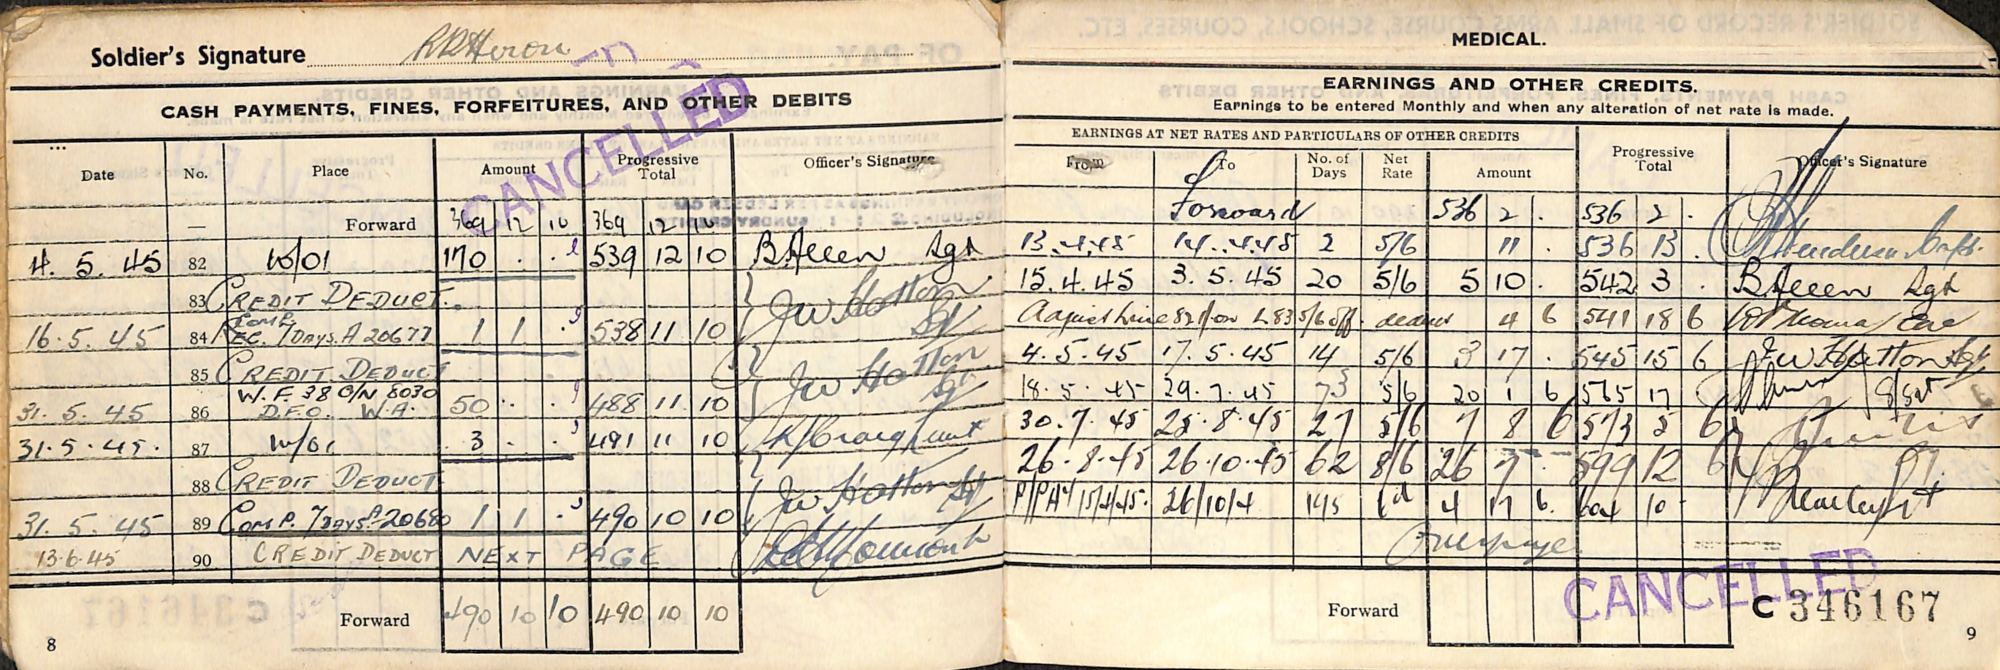 Soldier's Signature R R Heron
CASH PAYMENTS, FINES, FORFEITURES, AND OTHER DEBITS
CANCELLED
Date No. Place Amount Progressive Total Officer's Signature
Forward 369 12 10 369 12 10
4. 5. 45 82 W/01 170 . . 539 12 10 B Allen Sgt
83 CREDIT DEDUCT. JW Hatton Sgt
16. 5. 45 84 REC. COMP. 7 DAYS. A 20677 1 1 . 538 11 10
85 CREDIT DEDUCT JW Hatton Sgt
31. 5. 45 86 W.F. 38 C/N 8030 D.F.O. W.A. 50 . . 488 11 10
31. 5. 45. 87 W/01 3 . . 491 11 10
88 CREDIT DEDUCT JW Hatton Sgt
31. 5. 45 89 COMP. 7 DAYS 20680 1 1 . 490 10 10
13.6.45 90 CREDIT DEDUCT NEXT PAGE
Forward 490 10 10 490 10 10
8
MEDICAL.
EARNINGS AND OTHER CREDITS.
Earnings to be entered Monthly and when any alteration of net rate is made.
EARNINGS AT NET RATES AND PARTICULARS OF OTHER CREDITS
From To No. of Days Net Rate Amount Progressive Total Officer's Signature
Forward 536 2 . 536 2 .
13.4.45 14.4.45 2 5/6 11 . 536 13 . Henderson Capt.
15.4.45 3.5.45 20 5/6 5 10 . 542 3 . B Allen Sgt
deduct 4 6 541 18 6
4.5.45 17.5.45 14 5/6 3 17 . 545 15 6 JW Hatton Sgt
18.5.45 29.7.45 73 5/6 20 1 6 565 17 S/Sgt
30.7.45 25.8.45 27 5/6 7 8 6 573 5 6
26.8.45 26.10.45 62 8/6 26 7 . 599 12 6
15/4/45 26/10/4 145 6d 4 17 6. 604 10 .
Overpage
Forward
CANCELLED
C 346167
9